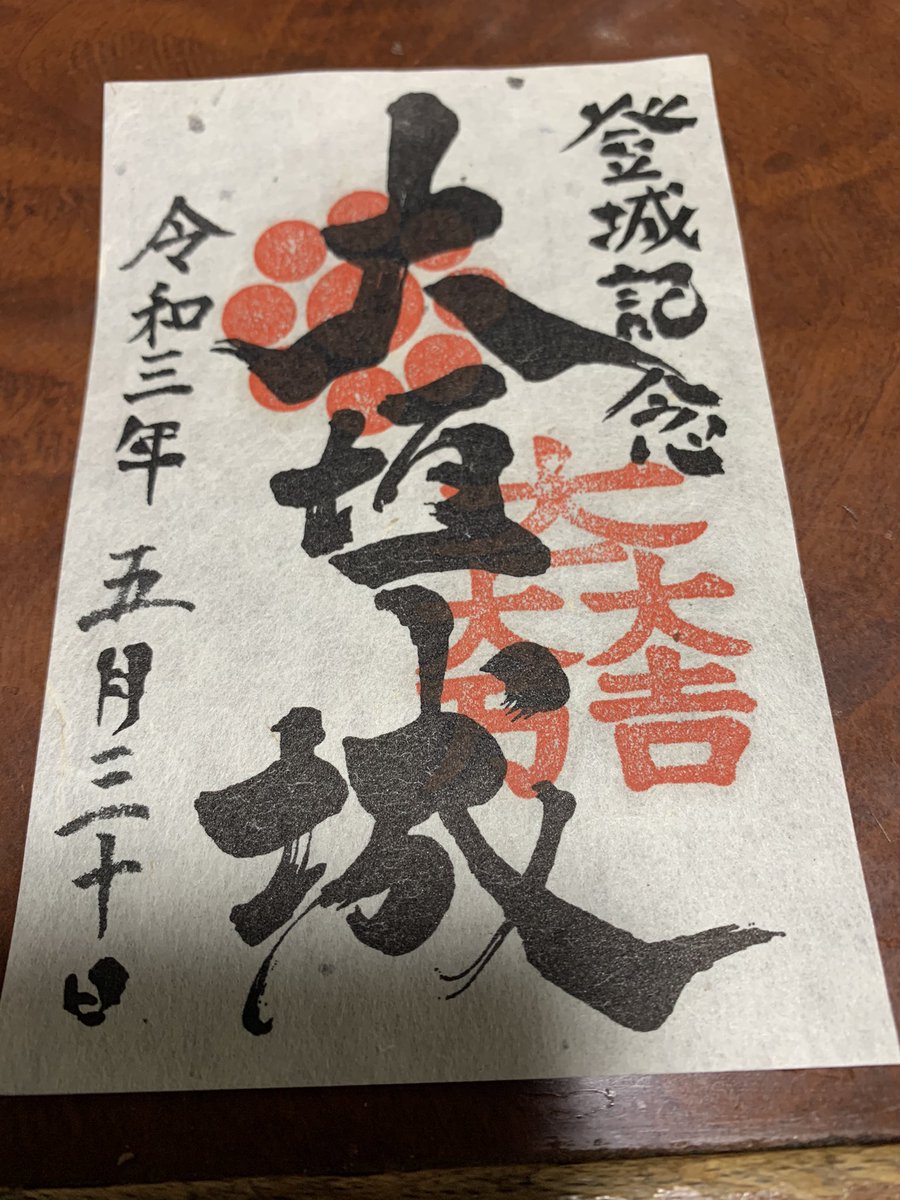 登城記念
大一大万大吉
大垣城
令和三年 五月三十日